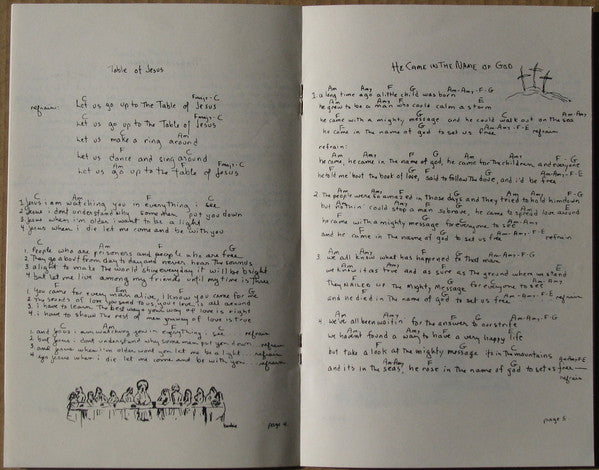 Table of Jesus
C Fmaj7-C
refrain: Let us go up to The Table of Jesus
C Fmaj7-C
Let us go up to The Table of Jesus
F Am
Let us make a ring around
F G
Let us dance and sing around
C Am F Fmaj7-C
Let us go up to the table of Jesus
C Am F G
1 Jesus i am watching you in everything i see
2 Jesus i dont understand why some men put you down
3 Jesus when i'm older i want to be a light
4 Jesus when i die let me come and be with you
C Am F G
1. people who are prisoners and people who are free
2. They go about from day to day and never hear The sounds
3 a light to make The world shine everyday it will be bright
4 but let me live among my friends until my time is Thru
F Em F G
1. you came for every man alive, I know you came for me
2 The sounds of love you send to us your love is all around
3 i have to learn The best ways your way of love is right
4 i have to show The rest of men your way of love is true
C Am F G C
1. and Jesus i am watching you in everything i see refrain
2 but Jesus i dont understand why some men put you down refrain
3 and Jesus when i'm older i want to be a light refrain
4 Jesus when i die let me come and be with you refrain
page 4
He Came in The Name of God
Am Am7 F G Am-Am7-F-G
1. a long time ago a little child was born
Am Am7 F E
he grew to be a man who could calm a storm
Am Am7 F G Am-Am7-F-G
he came with a mighty message and he could walk out on the sea
F G Am-Am7-F-E
he came in the name of god to set us free refrain
refrain:
Am Am7 F G Am-Am7-F-G
he came, he came in the name of god, he came for the children and everyone
Am Am7 F G
he told me bout the book of love, said to follow the dove, and i'd be free
Am Am7 F-G
2. The people were so amazed in Those days and They tried to hold him down
Am Am7 F E
but nothin' could stop a man so brave, he came to spread love around
F G
he came with a mighty message for everyone to see
F G Am-Am7-F-E
and he came in the name of god to set us free refrain
Am Am7 F G
3. we all know what has happened to that man
we know it as true and as sure as The ground where we stand
F G
They nailed up The mighty message for everyone to see
F G Am-Am7-F-E
and he died in the name of god to set us free. refrain
Am Am7 F G
4. we've all been waitin' for the answers to our strife
we haven't found a way to have a very happy life
F G
but take a look at the mighty message its in the mountains
G Am-Am7-F-E
and its in the seas, he rose in the name of god to set us free
refrain
page 5